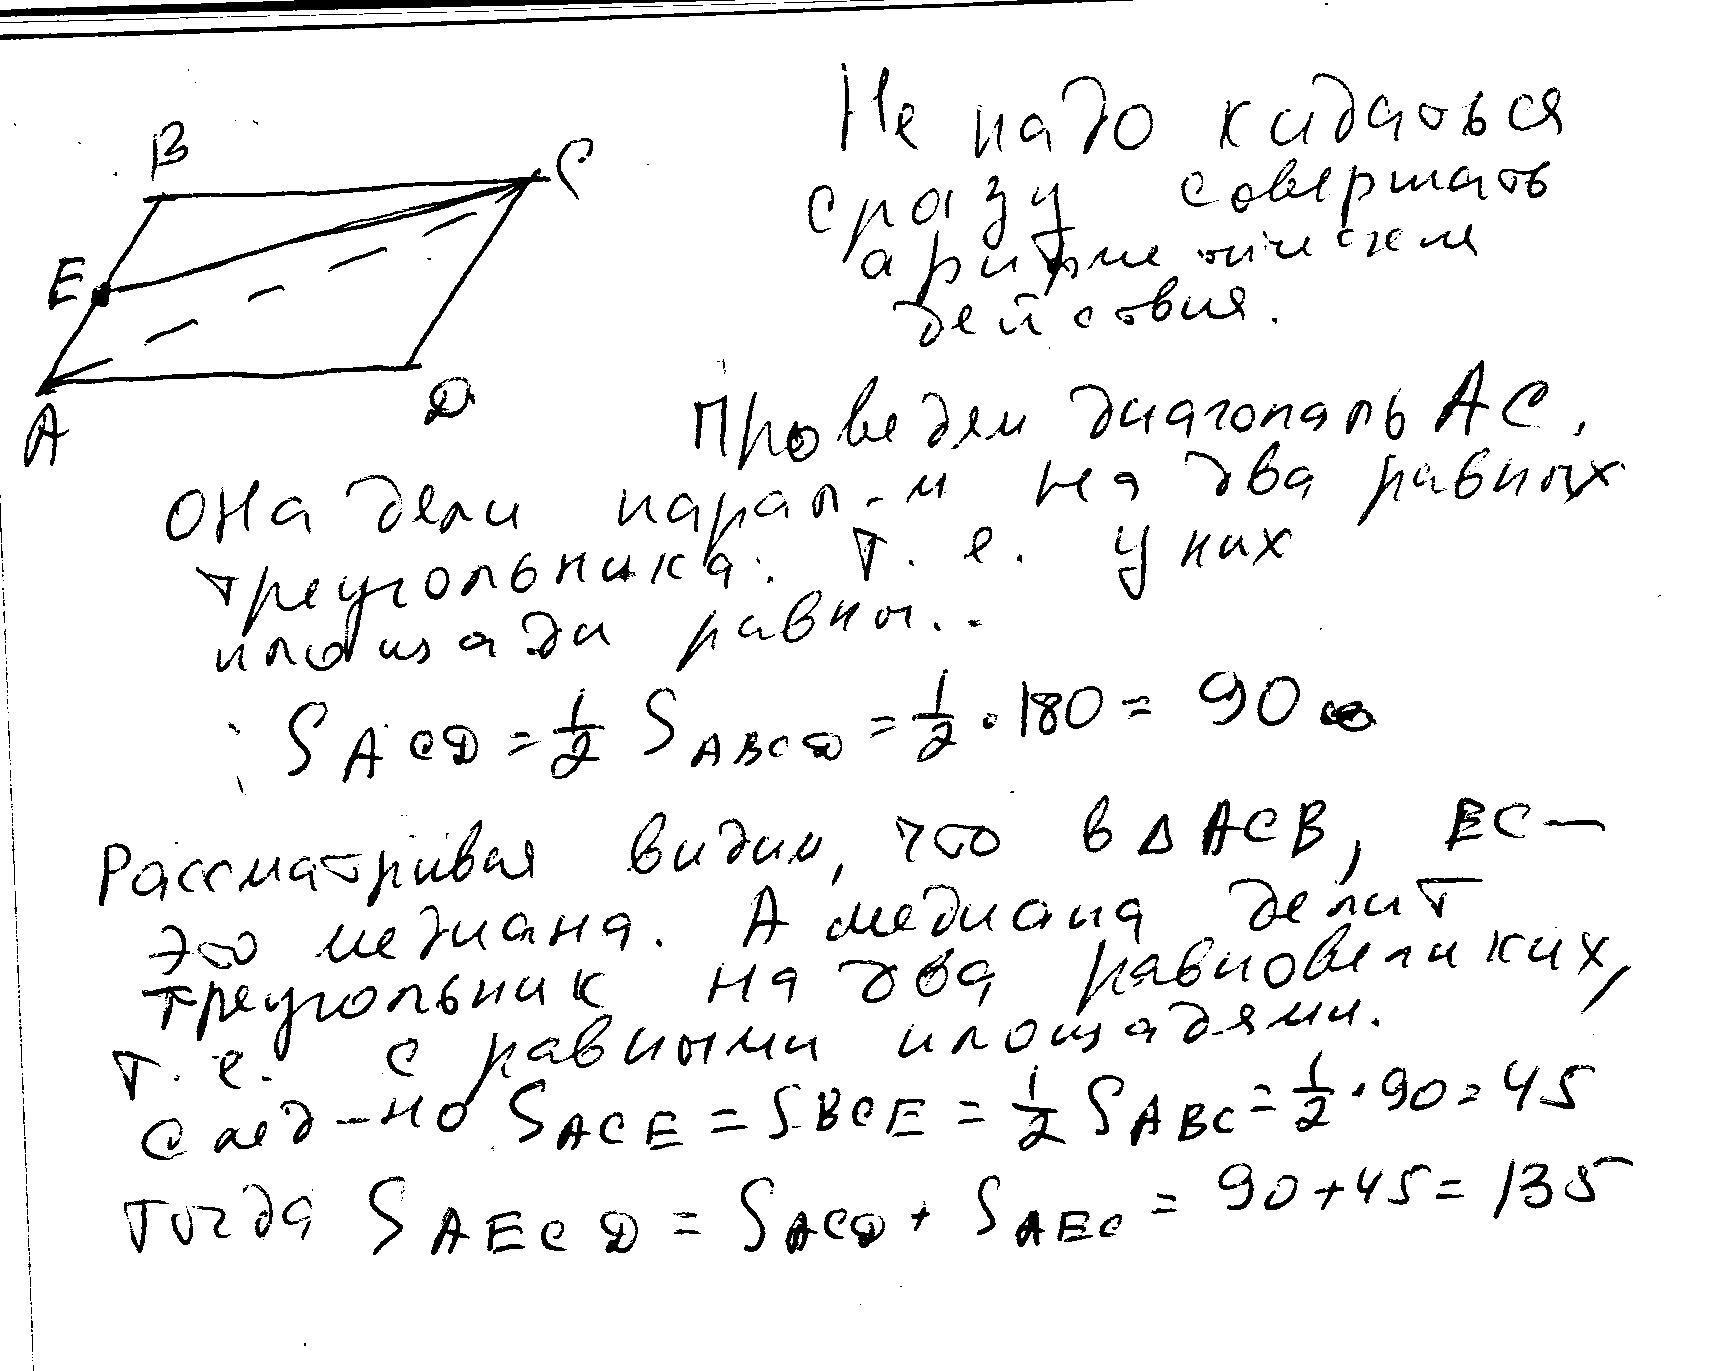 B
C
E
A
D
Не надо кидаться
сразу совершать
арифметические
действия.
Проведем диагональ AC,
она дели парал-м на два равных
треугольника. т. е. у них
площади равны..
S ACD = 1/2 S ABCD = 1/2 · 180 = 90
Рассматривая видим, что в Δ ACB, EC –
это медиана. А медиана делит
треугольник на два равновеликих,
т. е. с равными площадями.
След-но S ACE = S BCE = 1/2 S ABC = 1/2 · 90 = 45
Тогда S AECD = S ACD + S AEC = 90 + 45 = 135